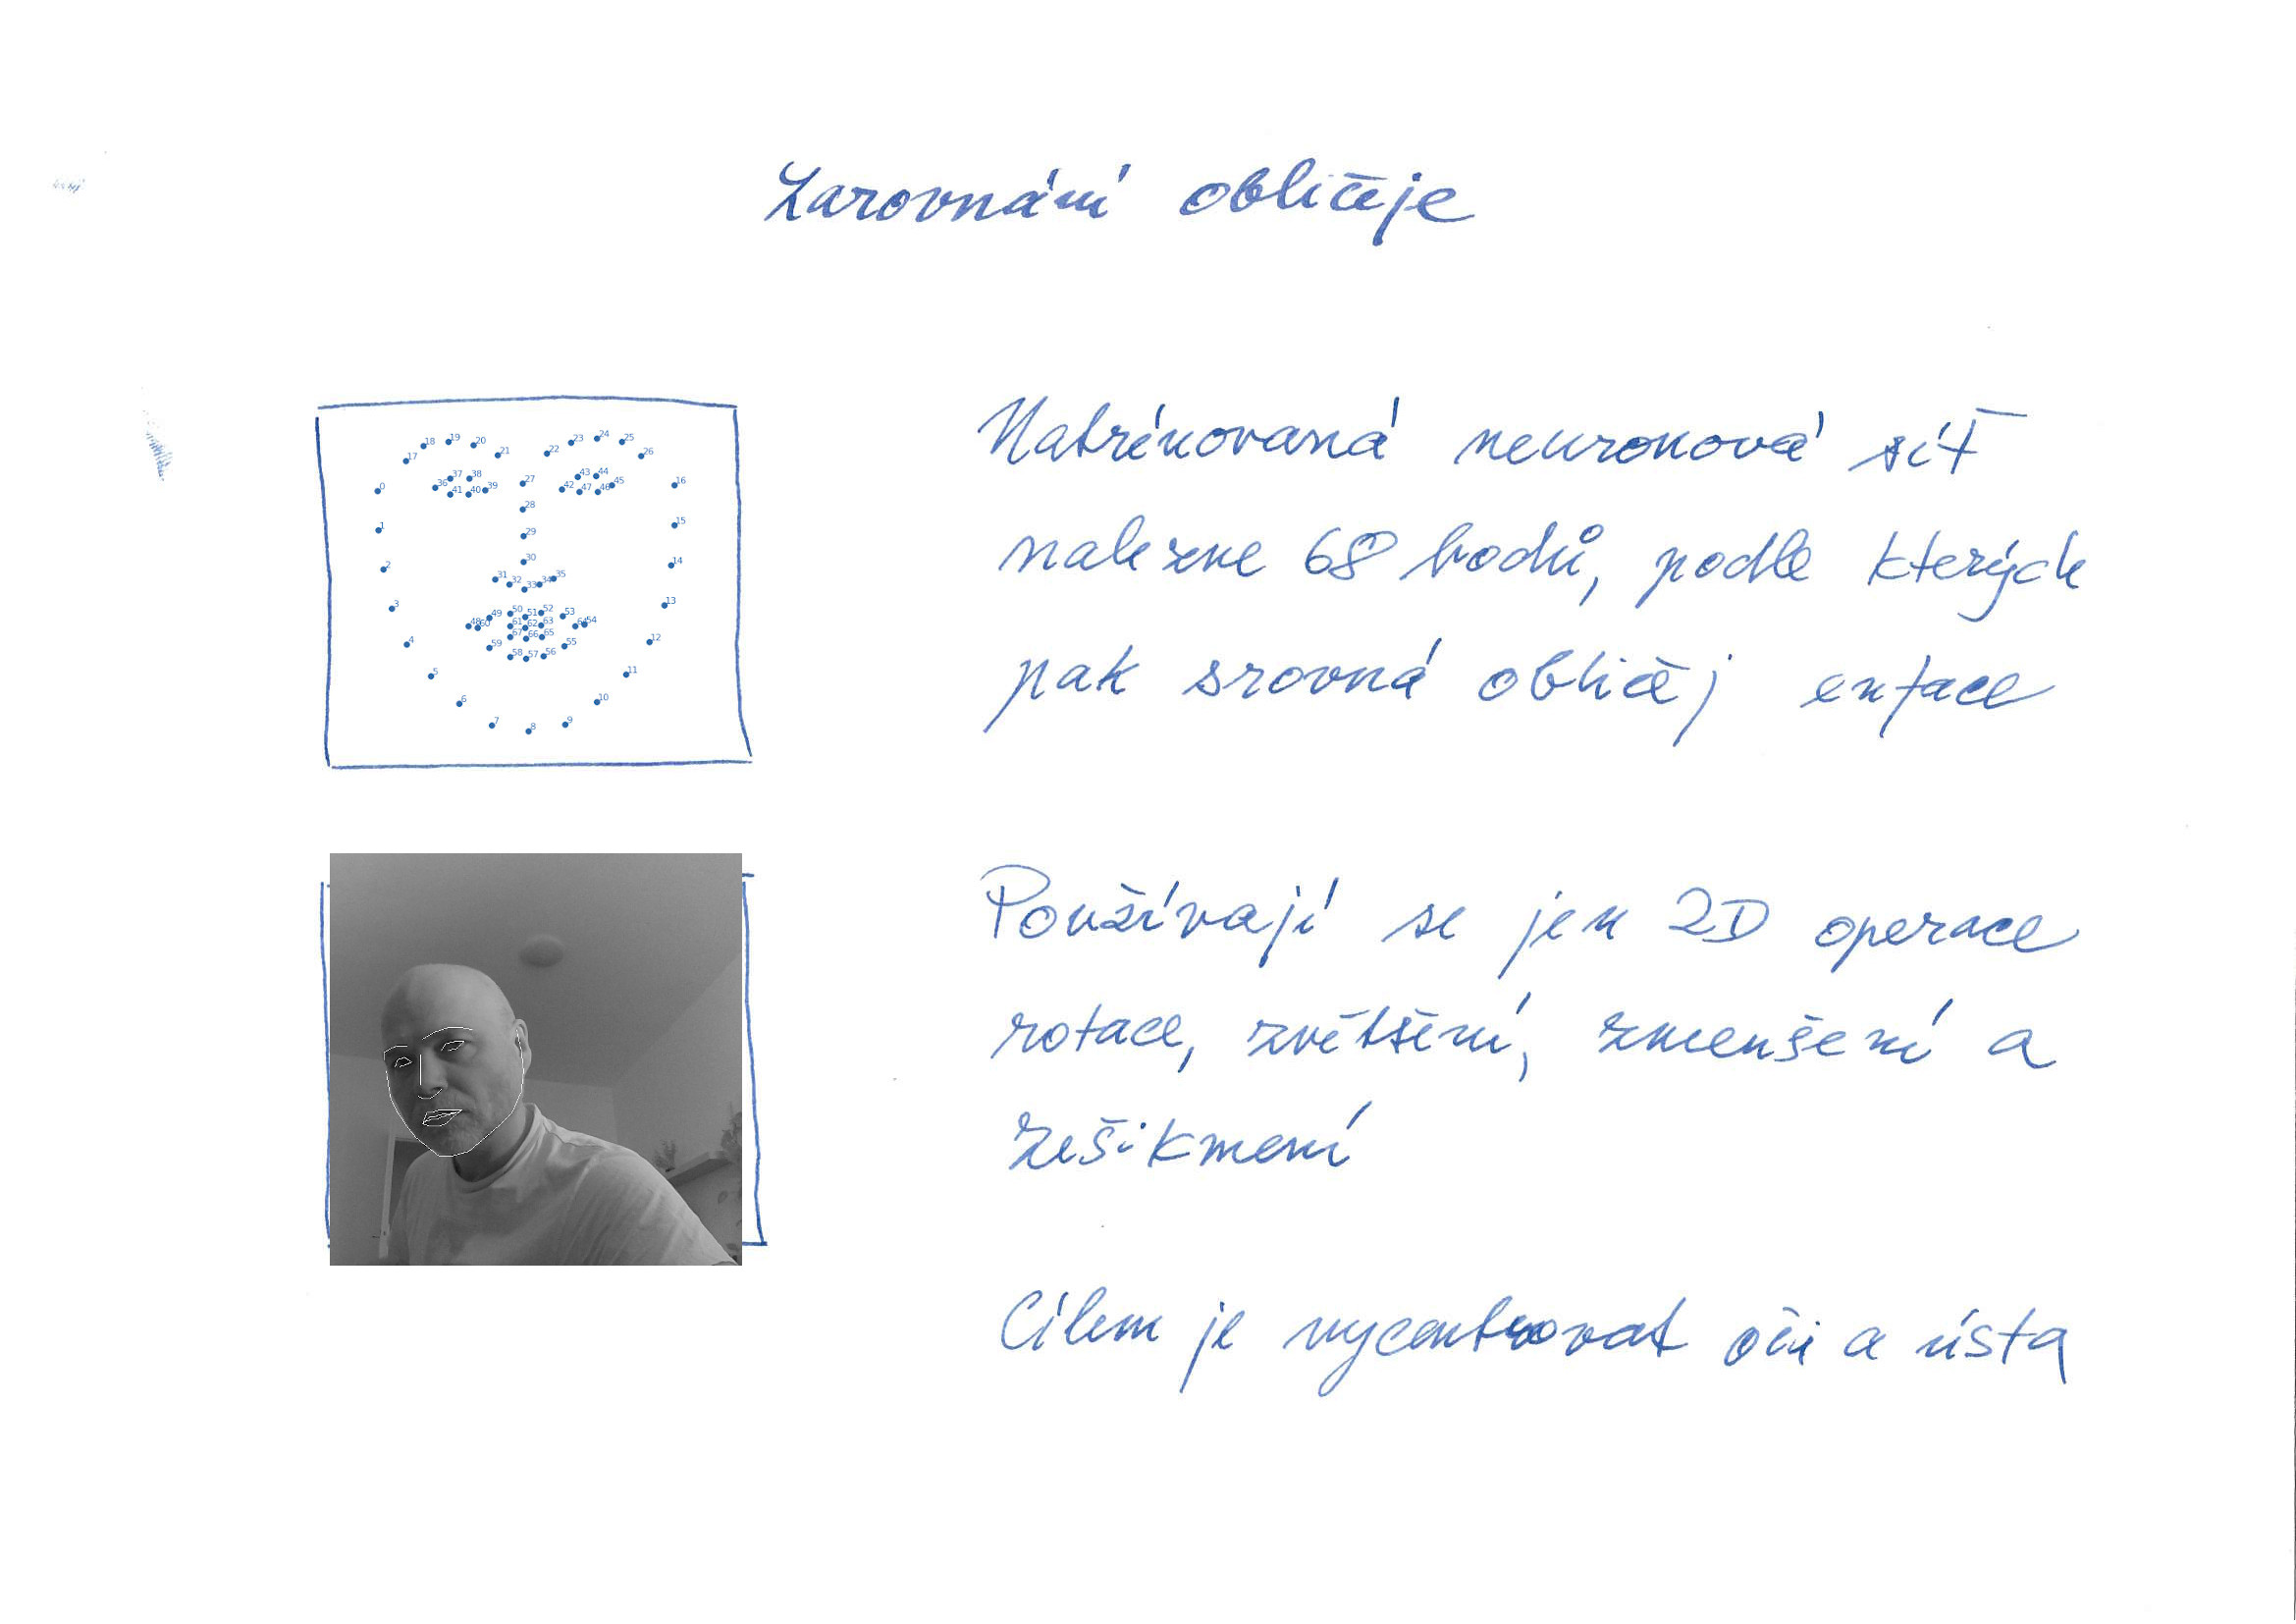 Zarovnání obličeje
Natrénovaná neuronová síť
nalezne 68 bodů, podle kterých
pak srovná obličej enface
Používají se jen 2D operace
rotace, zvětšení, zmenšení a
zešikmení
Cílem je vycentrovat oči a ústa
17 18 19 20 21 22 23 24 25 26
36 37 38 39 40 41 42 43 44 45 46 47
27
28
29
30
31 32 33 34 35
48 49 50 51 52 53 54
60 61 62 63 64
67 66 65
59 58 57 56 55
0 1 2 3 4 5 6 7 8 9 10 11 12 13 14 15 16